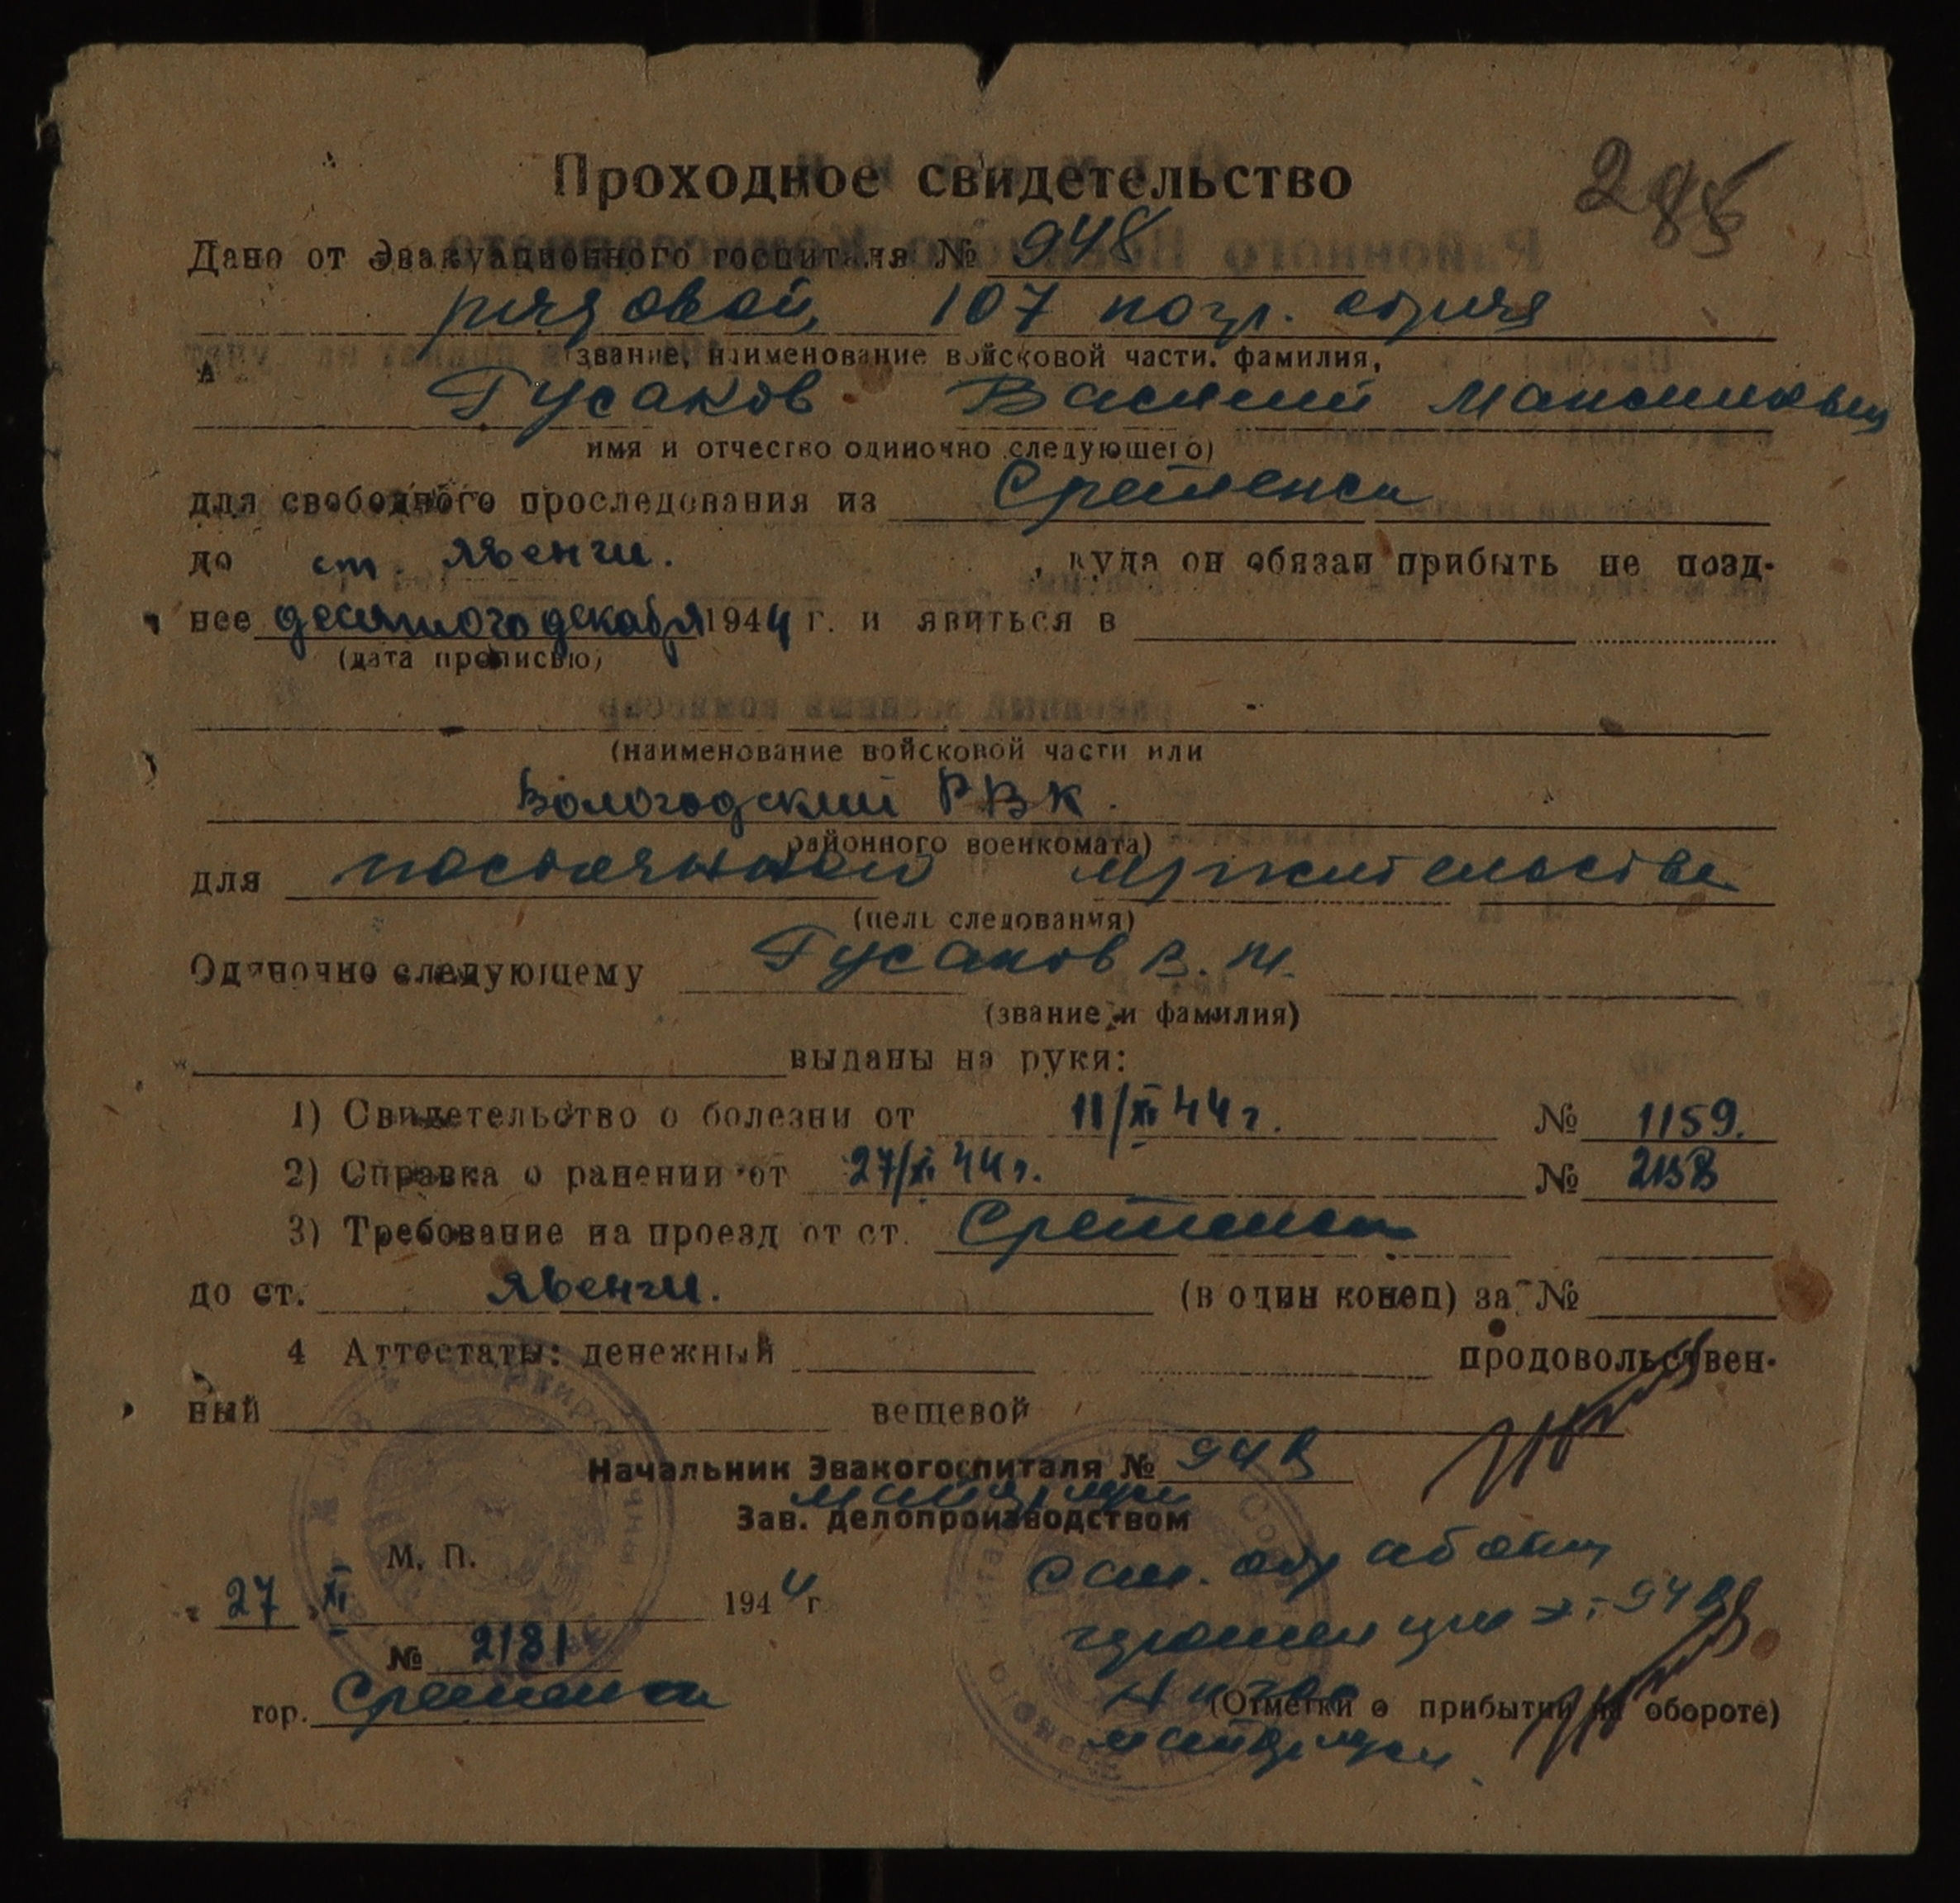 285
Проходное свидетельство
Дано от эвакуационного госпиталя № 948
рядовой, 107 погр. отряд
(звание, наименование войсковой части, фамилия,
Гусаков Василий Максимович
имя и отчество одиночно следующего)
для свободного проследования из Сретенска
до ст. Явенги. , куда он обязан прибыть не позд-
нее десятого декабря 1944 г. и явиться в
(дата прописью)
(наименование войсковой части или
Вологодский РВК.
районного военкомата)
для постоянного жительства
(цель следования)
Одиночно следующему Гусаков В. М.
(звание и фамилия)
выданы на руки:
1) Свидетельство о болезни от 11/XI 44 г. № 1159.
2) Справка о ранении от 27/XI 44 г. №
3) Требование на проезд от ст. Сретенск
до ст. Явенги. (в один конец) за №
4 Аттестаты: денежный продовольствен-
ный вещевой
Начальник Эвакогоспиталя № 948
Зав. делопроизводством
М. П.
сан. обработки
27 XI 1944 г
№ 2181
гор. Сретенск
(Отметки о прибытии на обороте)